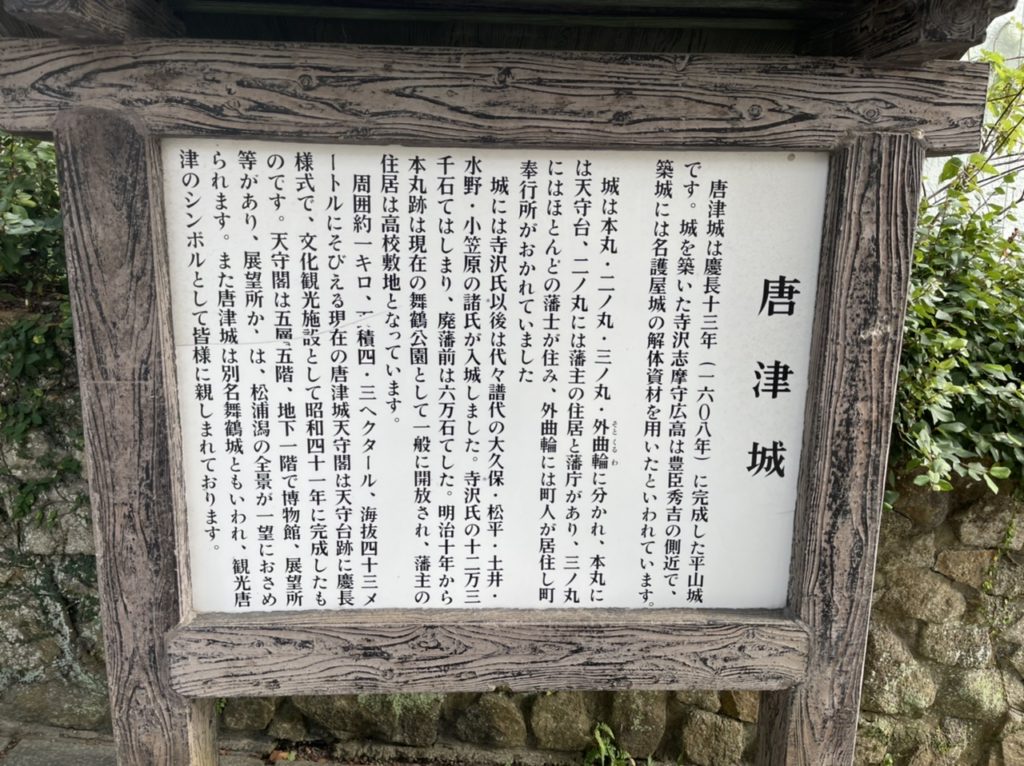 唐津城
唐津城は慶長十三年(一六〇八年)に完成した平山城
です。城を築いた寺沢志摩守広高は豊臣秀吉の側近で、
築城には名護屋城の解体資材を用いたといわれています。
城は本丸・二ノ丸・三ノ丸・外曲輪に分かれ、本丸に
そとくるわ
は天守台、二ノ丸には藩主の住居と藩庁があり、三ノ丸
にはほとんどの藩士が住み、外曲輪には町人が居住し町
奉行所がおかれていました
城には寺沢氏以後は代々譜代の大久保・松平・土井・
水野・小笠原の諸氏が入城しました。寺沢氏の十二万三
千石てはしまり、廃藩前は六万石てした。明治十年から
本丸跡は現在の舞鶴公園として一般に開放され、藩主の
住居は高校敷地となっています。
周囲約一キロ、積四・三ヘクタール、海抜四十三メ
ートルにそびえる現在の唐津城天守閣は天守台跡に慶長
様式で、文化観光施設として昭和四十一年に完成したも
のです。天守閣は五層五階、地下一階で博物館、展望所
等があり、展望所か、は、松浦潟の全景が一望におさめ
られます。また唐津城は別名舞鶴城ともいわれ、観光唐
津のシンボルとして皆様に親しまれております。